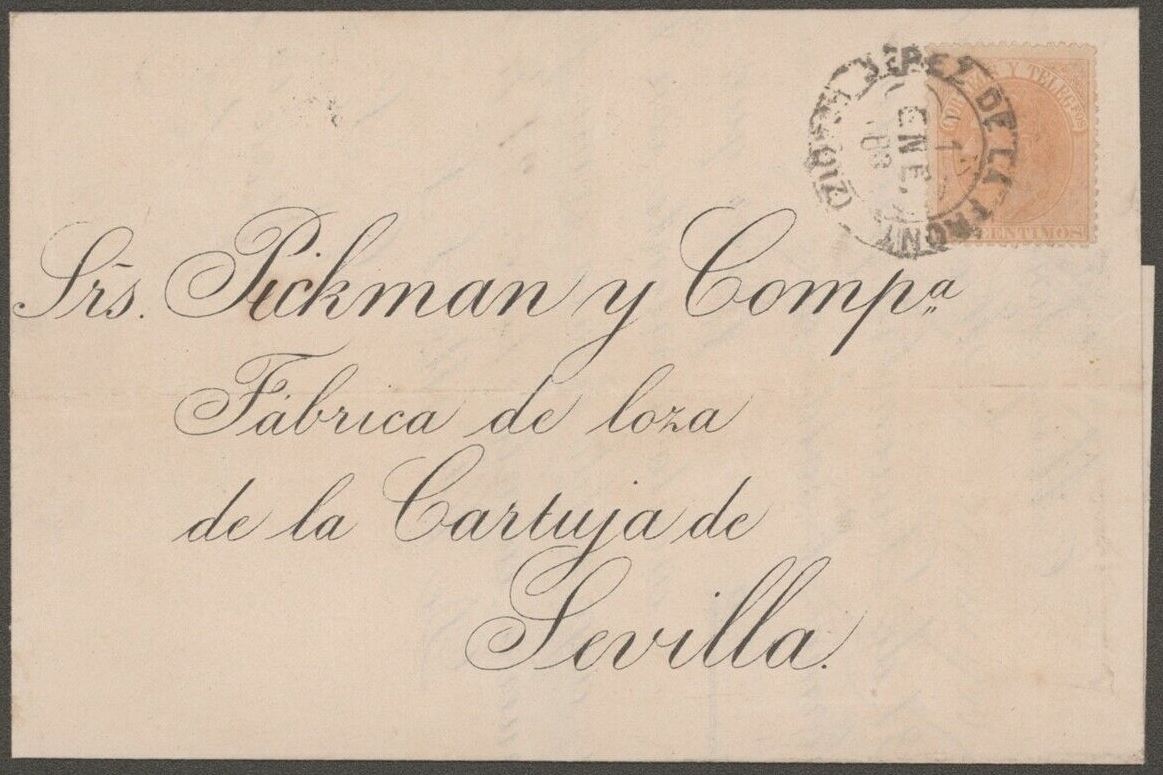 JEREZ DE LA FRONT
ENE.
CORREOS Y TELEGFOS
CENTIMOS
Srs. Pickman y Comp.ª
Fábrica de loza
de la Cartuja de
Sevilla.